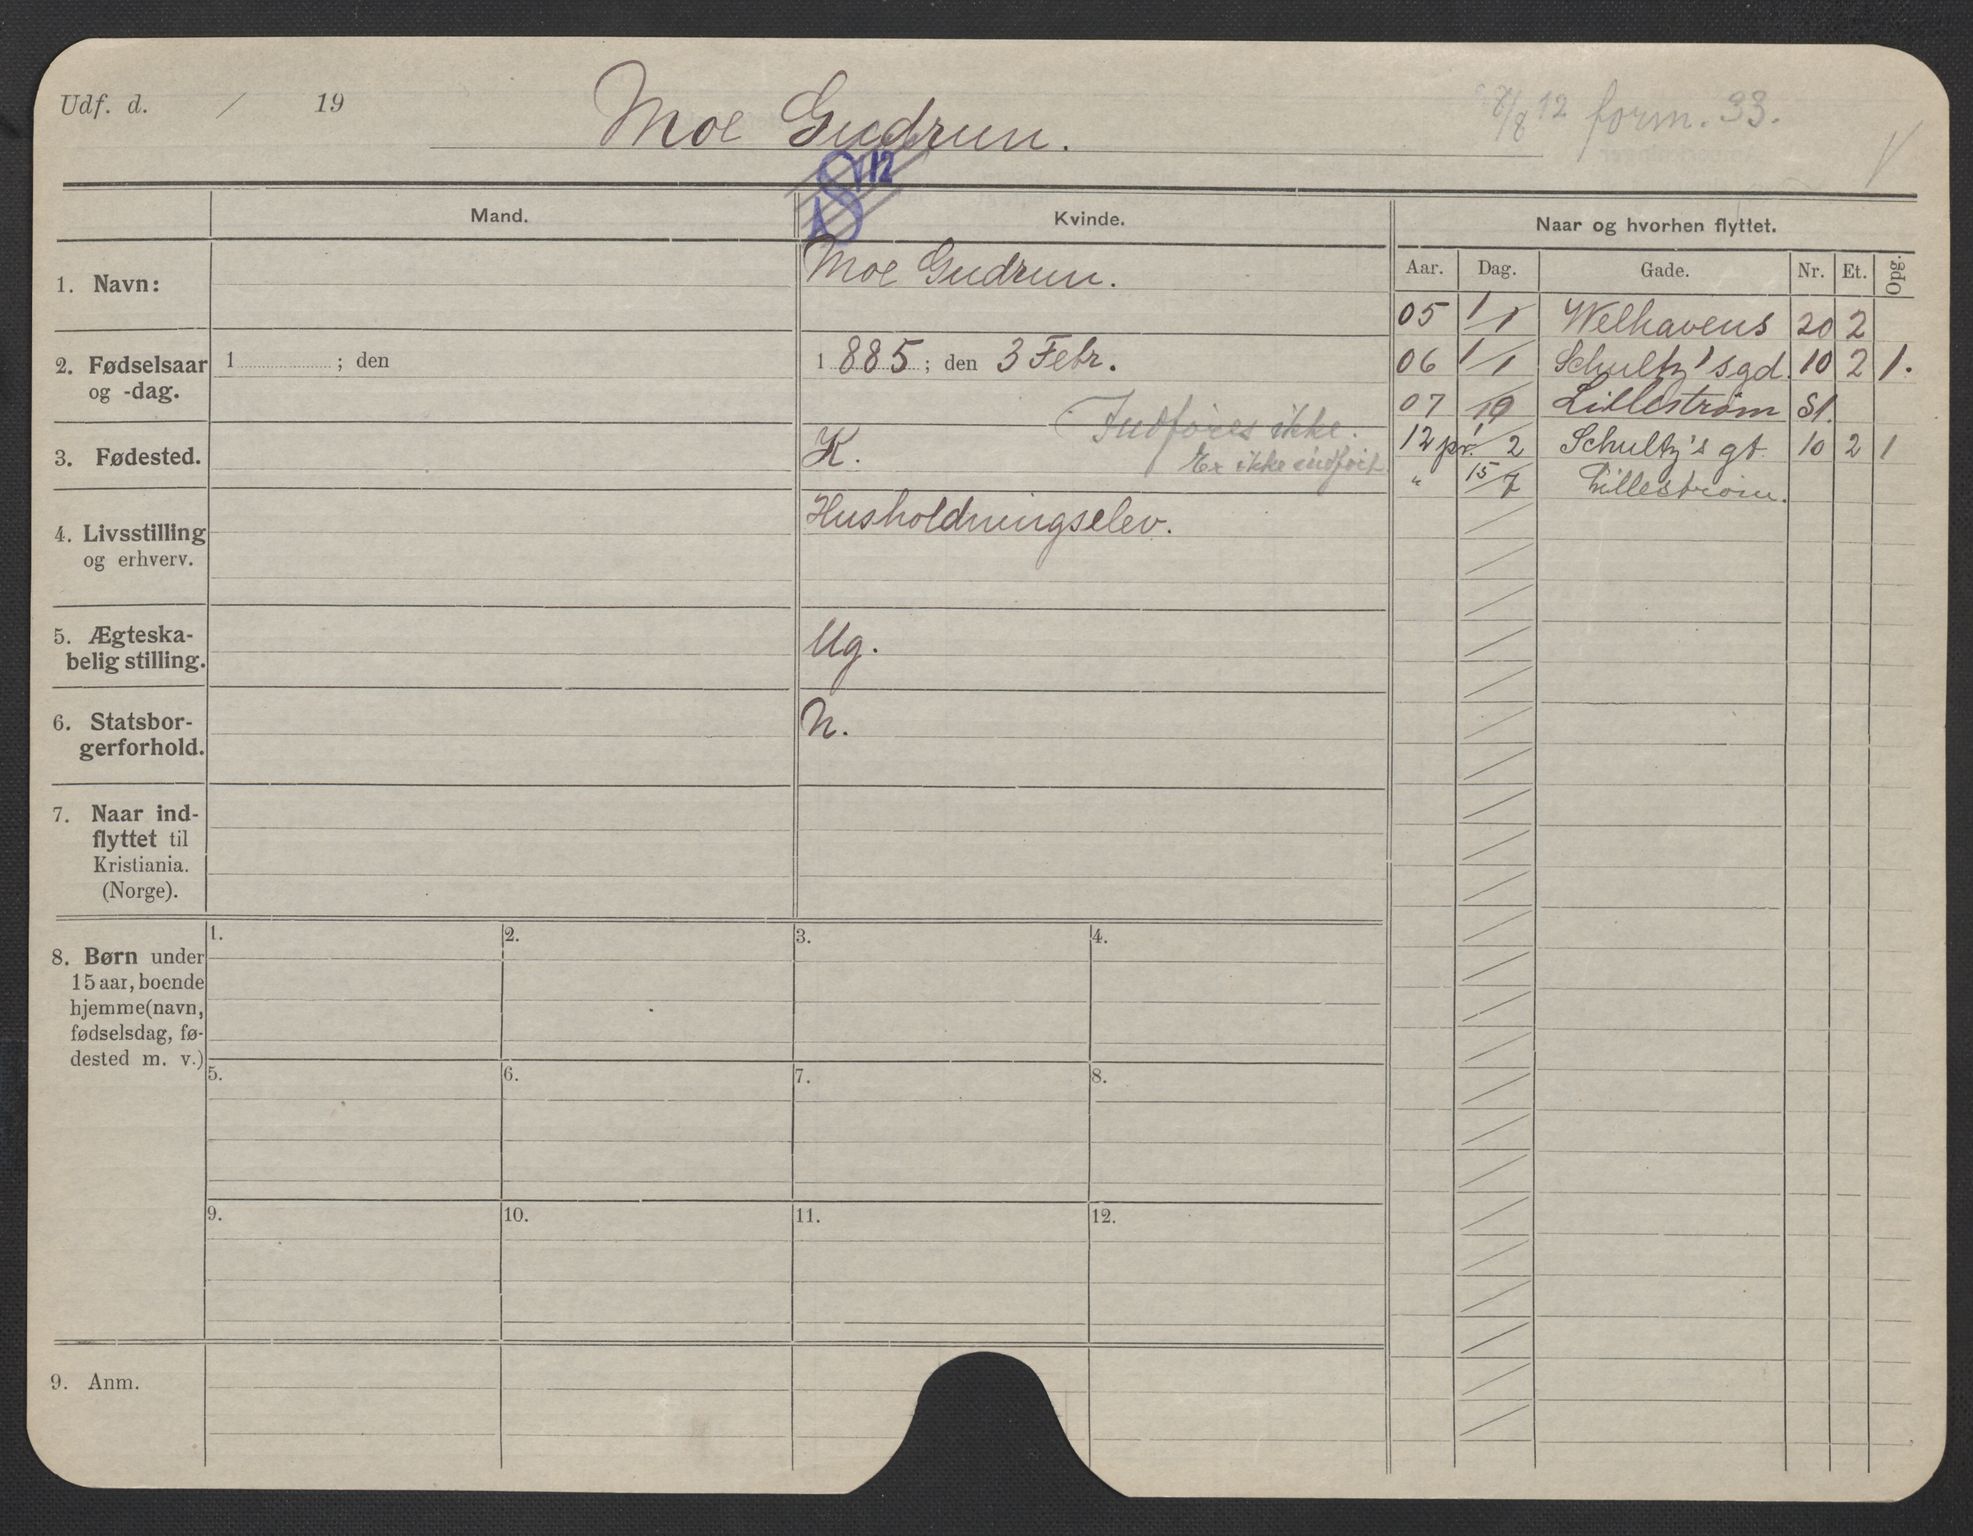 Udf. d. / 19
Moe Gudrun.
8/8 12 form. 33.
Mand.
Kvinde.
Naar og hvorhen flyttet.
Aar. Dag. Gade. Nr. Et. Opg.
1. Navn:
Moe Gudrun.
2. Fødselsaar
og -dag.
1 ; den
1885; den 3 Febr.
3. Fødested.
K.
Indføres ikke.
Er ikke indført
4. Livsstilling
og erhverv.
Husholdningselev.
5. Ægteska-
belig stilling.
Ug.
6. Statsbor-
gerforhold.
N.
7. Naar ind-
flyttet til
Kristiania.
(Norge).
8. Børn under
15 aar, boende
hjemme (navn,
fødselsdag, fø-
dested m. v.)
1. 2. 3. 4.
5. 6. 7. 8.
9. 10. 11. 12.
9. Anm.
05 1/1 Welhavens 20 2
06 1/1 Schultz'sgd. 10 2 1.
07 /10 Lillestrøm St.
12 pr. 1/2 Schultz's gt. 10 2 1
" 15/7 Lillestrøm.